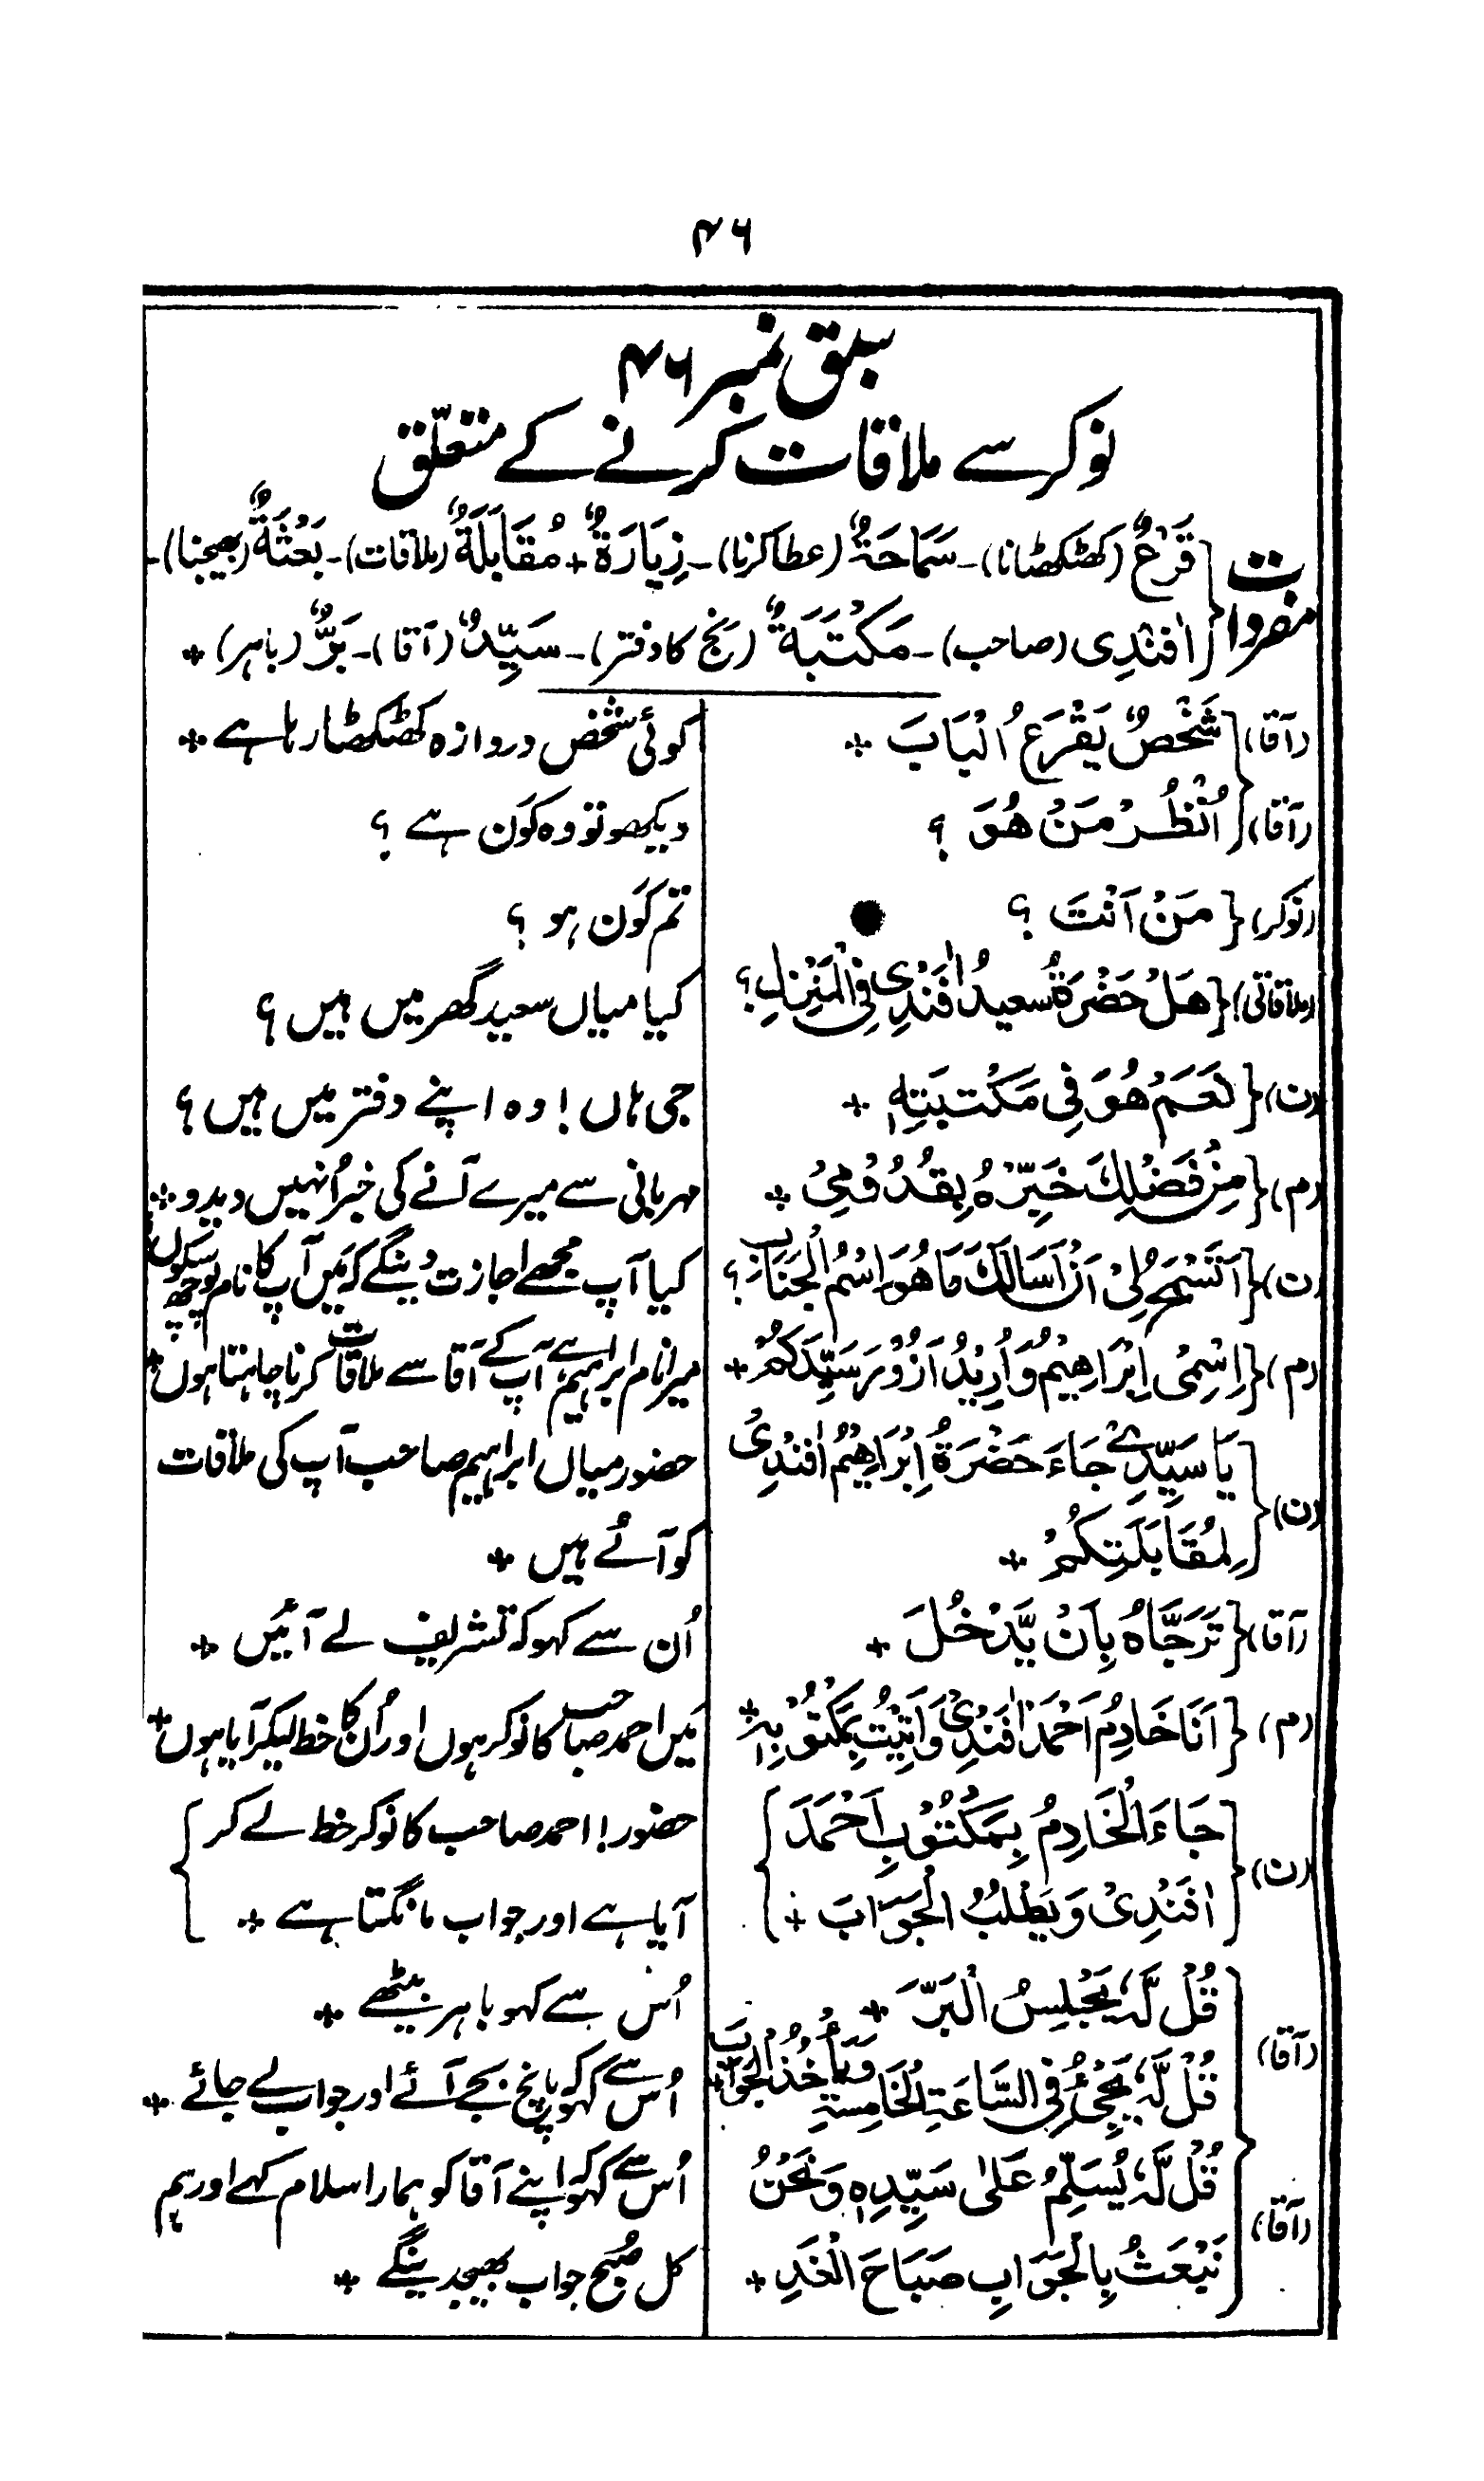 ۴۶
سبق نمبر ۴۶
نوکر سے ملاقات کرنے کے متعلّق
مفردات
قَرْعٌ (کھٹکھٹانا)۔ سَمَاحَةٌ (عطا کرنا)۔ زِیَارَةٌ + مُقَابَلَةٌ (ملاقات)۔ بَعْثَةٌ (بھیجنا)۔
اٰفَنْدِی (صاحب)۔ مَکْتَبَةٌ (نج کا دفتر)۔ سَیِّدٌ (آقا)۔ بَرٌّ (باہر) +
(آقا) شَخْصٌ یَقْرَعُ الْبَابَ + کوئی شخص دروازہ کھٹکھٹا رہا ہے +
(آقا) اُنْظُرْ مَنْ هُوَ ؟ دیکھو تو وہ کَون ہے ؟
(نوکر) مَنْ اَنْتَ ؟ تم کَون ہو ؟
(ملاقاتی) هَلْ حَضْرَةُ سعیدُ اٰفَنْدِی فِی الْمَنْزِلِ ؟ کیا میاں سعید گھر میں ہیں ؟
(ن) نَعَمْ هُوَ فِی مَکْتَبَتِهٖ + جی ہاں ! وہ اپنے دفتر میں ہیں ؟
(م) مِنْ فَضْلِكَ خَبِّرْهُ بِقُدُوْمِیْ + مہربانی سے میرے آنے کی خبر اُنہیں دیدو +
(ن) اَتَسْمَحُ لِیْ اَنْ اَسَالَكَ مَا هُوَ اِسْمُ الْجَنَابِ ؟ کیا آپ مجھے اجازت دینگے کہ مَیں آپ کا نام پوچھ سکوں
(م) اِسْمِیْ اِبْرَاهِیْمُ وَاُرِیْدُ اَزُوْرَ سَیِّدَکُمْ + میرا نام ابراہیم ہے آپ کے آقا سے ملاقات کرنا چاہتا ہوں +
(ن) یَا سَیِّدِیْ جَاءَ حَضْرَةُ اِبْرَاهِیْمُ اٰفَنْدِیْ حضور میاں ابراہیم صاحب آپ کی ملاقات
لِمُقَابَلَتِکُمْ + کو آئے ہیں +
(آقا) تَرَجَّاهُ بِاَنْ یَّدْخُلَ + اُن سے کہو کہ تشریف لے آئیں +
(م) اَنَا خَادِمُ اَحْمَدَ اٰفَنْدِیْ وَاَتَیْتُ بِمَکْتُوْبِهٖ + مَیں احمد صاحب کا نوکر ہوں اور اُن کا خط لیکر آیا ہوں +
(ن) جَاءَ الْخَادِمُ بِمَکْتُوْبِ اَحْمَدَ حضور! احمد صاحب کا نوکر خط لے کر
اٰفَنْدِیْ وَیَطْلُبُ الْجَوَابَ + آیا ہے اور جواب مانگتا ہے +
(آقا) قُلْ لَّهٗ یَجْلِسُ الْبَرَّ + اُس سے کہو باہر بیٹھے +
قُلْ لَّهٗ یَجِیْءُ فِی السَّاعَةِ الْخَامِسَةِ وَیَأْخُذُ الْجَوَابَ + اُس سے کہو کہ پانچ بجے آئے اور جواب لے جائے +
(آقا) قُلْ لَّهٗ یُسَلِّمُ عَلٰی سَیِّدِهٖ وَنَحْنُ اُس سے کہو کہ اپنے آقا کو ہمارا سلام کہے اور ہم
نَبْعَثُ بِالْجَوَابِ صَبَاحَ الْغَدِ + کل صبح جواب بھیجدینگے +